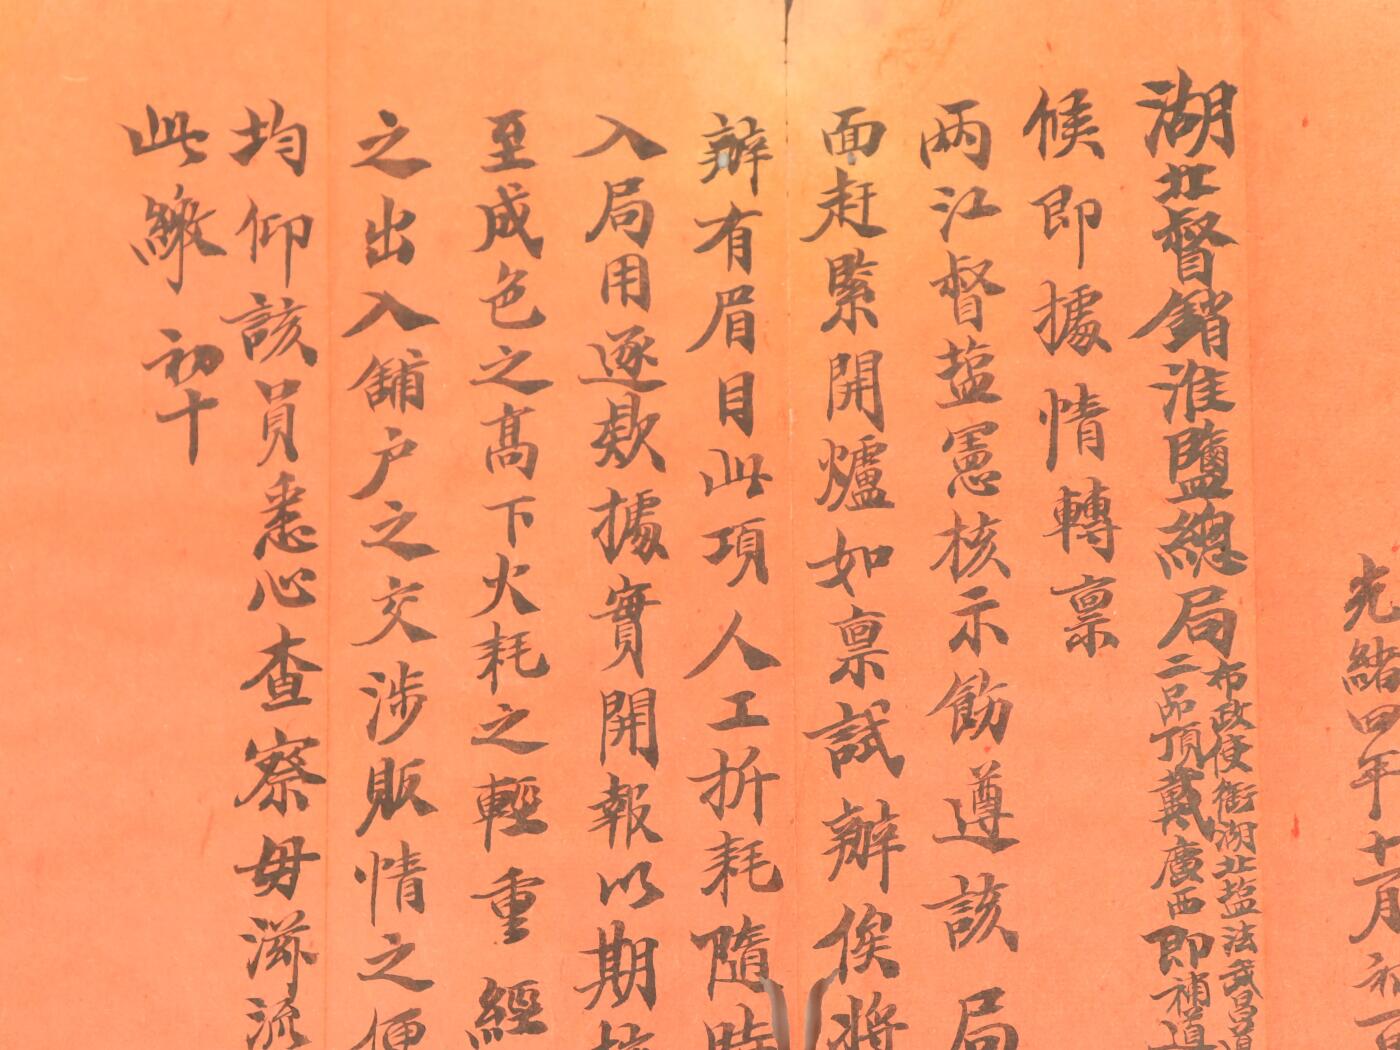 光緒四年十一月初
湖北督銷淮鹽總局
布政使銜湖北盐法武昌道
二品頂戴廣西即補道
候即據情轉稟
兩江督盐憲核示飭遵該局
面赶緊開爐如稟試辦俟將
辦有眉目此項人工折耗隨時
入局用逐欵據實開報以期核
至成色之高下火耗之輕重經
之出入舖户之交涉販情之便
均仰該員悉心查察毋滋流
此繳 初十